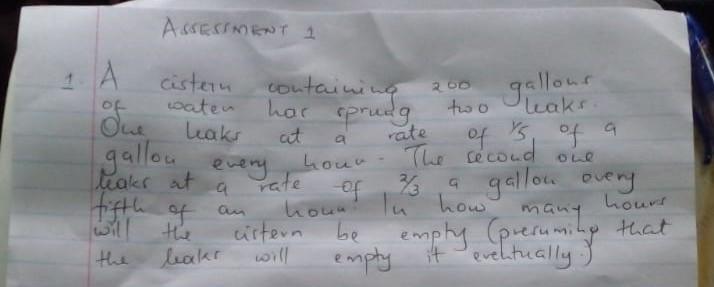 ASSESSMENT 1
1. A cistern containing 200 gallons
of water has sprung two leaks.
One leaks at a rate of 1/5 of a
gallon every hour. The second one
leaks at a rate of 2/3 a gallon every
fifth of an hour. In how many hours
will the cistern be empty (presuming that
the leaks will empty it eventually.)